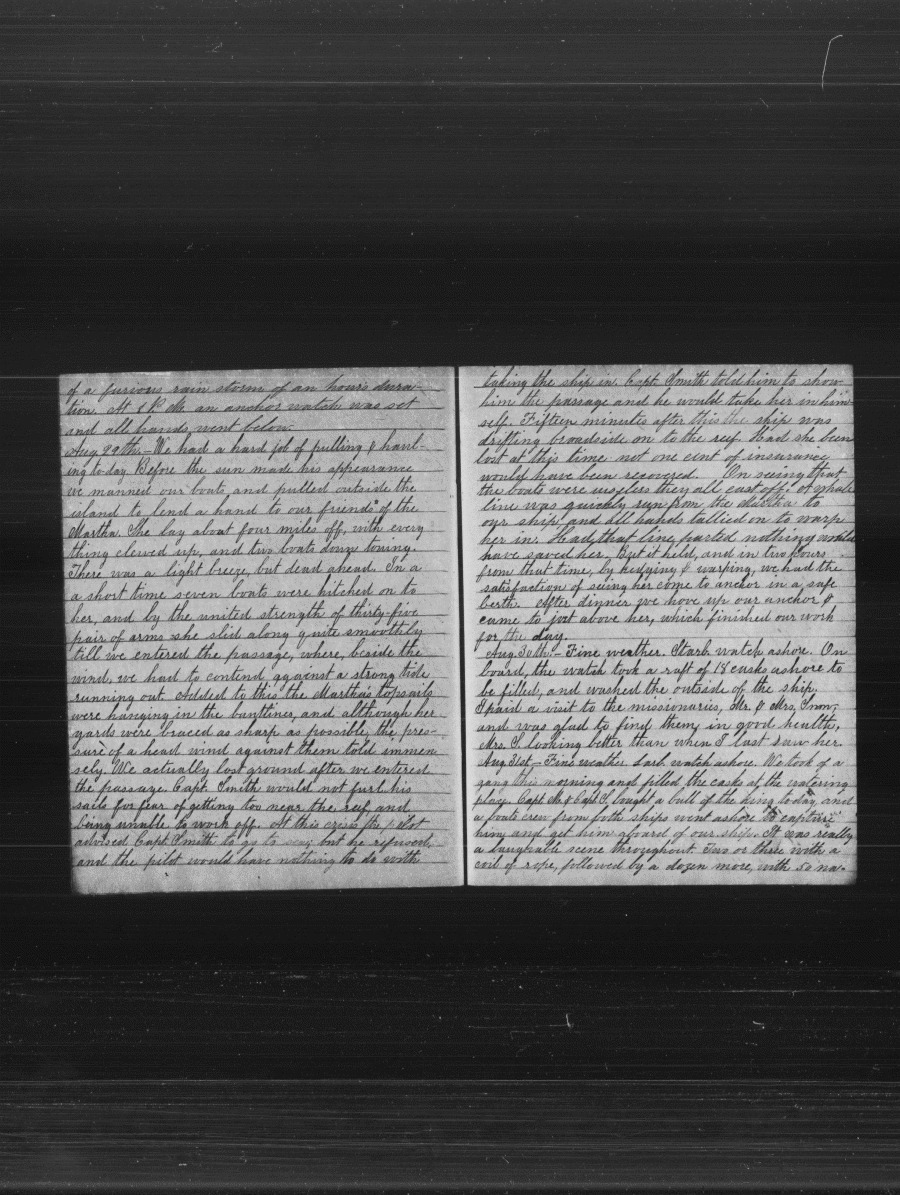 of a furious rain storm of an hour's dura-
tion. At 8 P. M. an anchor watch was set
and all hands went below.
Aug 29th.- We had a hard job of pulling & haul-
ing to-day. Before the sun made his appearance
we manned our boats and pulled outside the
island to lend a hand to our friends of the
Martha. She lay about four miles off, with every
thing clewed up, and two boats down towing.
There was a light breeze, but dead ahead. In a
a short time seven boats were hitched on to
her, and by the united strength of thirty-five
pair of arms she slid along quite smoothly
till we entered the passage, where, beside the
wind, we had to contend against a strong tide
running out. Added to this the Martha's topsails
were hanging in the buntlines, and although her
yards were braced as sharp as possible, the pres-
sure of a head wind against them told immen
sely. We actually lost ground after we entered
the passage. Capt. Smith would not furl his
sails for fear of getting too near the reef and
being unable to work off. At this crisis the pilot
advised Capt. Smith to go to sea, but he refused,
and the pilot would have nothing to do with
taking the ship in. Capt. Smith told him to show
him the passage and he would take her in him-
self. Fifteen minutes after this the ship was
drifting broadside on to the reef. Had she been
lost at this time not one cent of insurance
would have been recovered. On seeing that
the boats were useless they all cast off. A whale
line was quickly run from the Martha to
our ship, and all hands tallied on to warp
her in. Had that line parted nothing would
have saved her. But it held, and in two hours
from that time, by kedging & warping, we had the
satisfaction of seeing her come to anchor in a safe
berth. After dinner we hove up our anchor &
came to just above her, which finished our work
for the day.
Aug. 30th.- Fine weather. Starb. watch ashore. On
board, the watch took a raft of 18 casks ashore to
be filled, and washed the outside of the ship.
I paid a visit to the missionaries, Mr. & Mrs. Snow,
and was glad to find them in good health,
Mrs. S. looking better than when I last saw her.
Aug 31st.- Fine weather. Larb. watch ashore. We took of a
gang this morning and filled the casks at the watering
place. Capt. M. & Capt. S. bought a bull of the king to-day, and
a boats crew from both ships went ashore to "capture"
him and get him aboard of our ship. It was really
a laughable scene throughout. Two or three with a
coil of rope, followed by a dozen more, with 50 na-